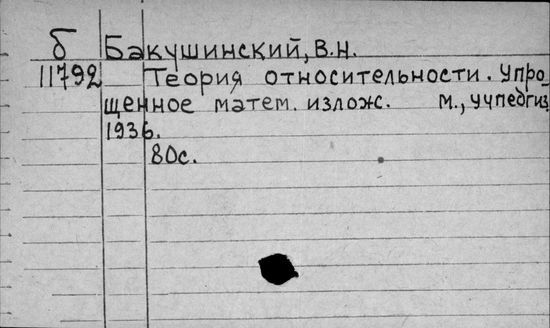 б Бакушинский, В.Н.
11792 Теория относительности. Упро-
щенное матем. излож. М., Учпедгиз,
1936.
80с.